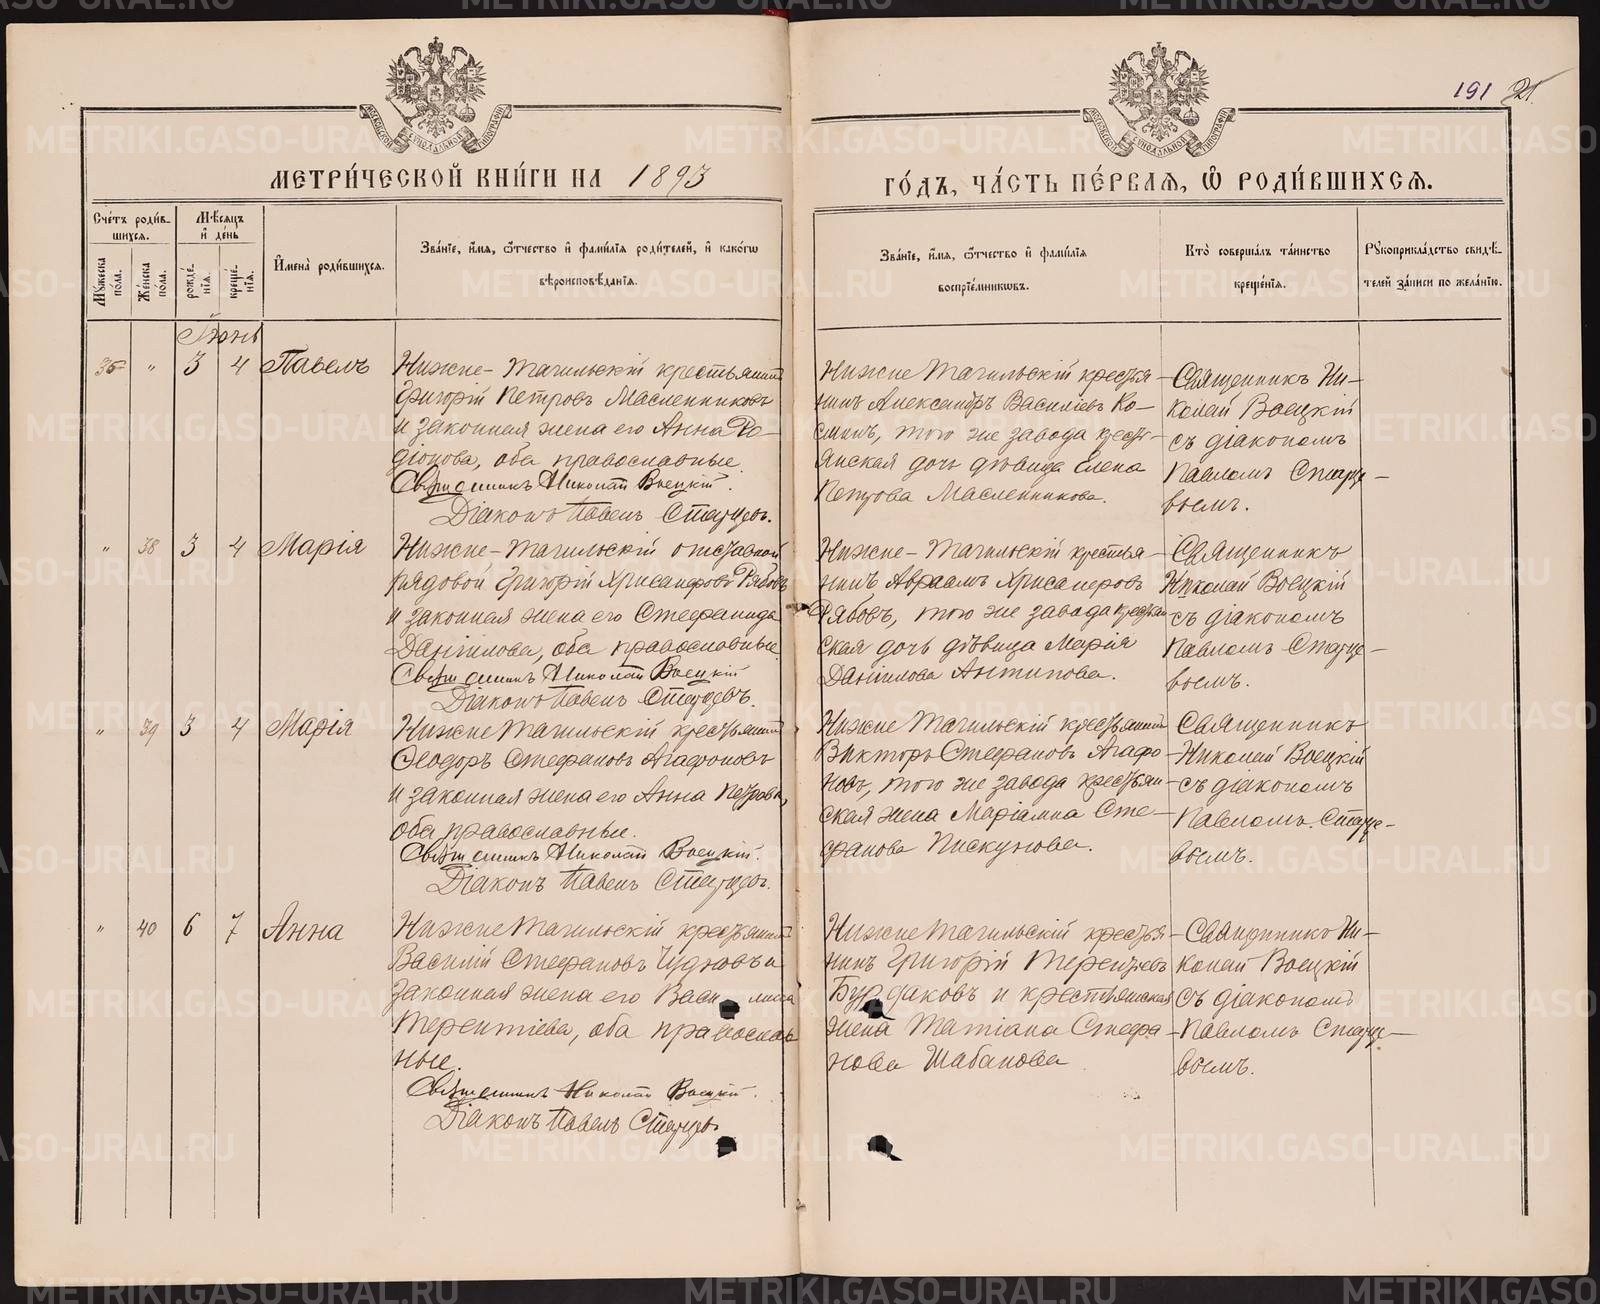 191 21
МЕТРИ́ЧЕСКОЙ КНИ́ГИ НА 1893
ГО́ДЪ, ЧА́СТЬ ПЕ́РВАЯ, Ѽ РОДИ́ВШИХСЯ.
Сче́тъ роди́в-
шихся.
Му́жеска по́ла.
Же́нска по́ла.
Мѣ́сяцъ и҆ де́нь
рожде́нїя.
креще́нїя.
И҆мена̀ роди́вшихся.
Зва́нїе, и҆́мя, ѻ҆́тчество и҆ фами́лїя роди́телей, и҆ како́гѡ
вѣроисповѣ́данїя.
Зва́нїе, и҆́мя, ѻ҆́тчество и҆ фами́лїя
воспрїе́мникѡвъ.
Кто̀ соверша́лъ та́инство
креще́нїя.
Рꙋкоприкла́дство свидѣ́-
телей за́писи по жела́нїю.
Іюнь
35 " 3 4 Павелъ
Нижне-Тагильскій крестьянинъ
Григорій Петровъ Масленниковъ
и законная жена его Анна Ро-
діонова, оба православные.
Священникъ Николай Воецкій.
Діаконъ Павелъ Старцевъ.
Нижне Тагильскій крестья-
нинъ Александръ Василіевъ Ко-
синъ, того же завода кресть-
янская дочь дѣвица Елена
Петрова Масленникова.
Священникъ Ни-
колай Воецкій
съ діакономъ
Павломъ Старце-
вымъ.
" 38 3 4 Марія
Нижне-Тагильскій отставной
рядовой Григорій Хрисанфовъ Рябовъ
и законная жена его Стефанида
Даніилова, оба православные.
Священникъ Николай Воецкій
Діаконъ Павелъ Старцевъ.
Нижне-Тагильскій крестья-
нинъ Авраамъ Хрисанфовъ
Рябовъ, того же завода крестьян
ская дочь дѣвица Марія
Даніилова Антипова.
Священникъ
Николай Воецкій
съ діакономъ
Павломъ Старце-
вымъ.
" 39 3 4 Марія
Нижне Тагильскій крестьянинъ
Ѳеодоръ Стефановъ Агафоновъ
и законная жена его Анна Петрова,
оба православные.
Священникъ Николай Воецкій.
Діаконъ Павелъ Старцевъ.
Нижне Тагильскій крестьянинъ
Викторъ Стефановъ Агафо-
новъ, того же завода крестьян-
ская жена Маріамна Сте-
фанова Пискунова.
Священникъ
Николай Воецкій
съ діакономъ
Павломъ Старце-
вымъ.
" 40 6 7 Анна
Нижне Тагильскій крестьянинъ
Василій Стефановъ Чудновъ и
законная жена его Васи лисса
Терентіева, оба православ
ные.
Священникъ Николай Воецкій.
Діаконъ Павелъ Старцевъ
Нижне Тагильскій крестья-
нинъ Григорій Терентіевъ
Бурдаковъ и крестьянская
жена Татіана Стефа-
нова Шабанова
Священникъ Ни-
колай Воецкій
съ діакономъ
Павломъ Старце-
вымъ.
METRIKI.GASO-URAL.RU